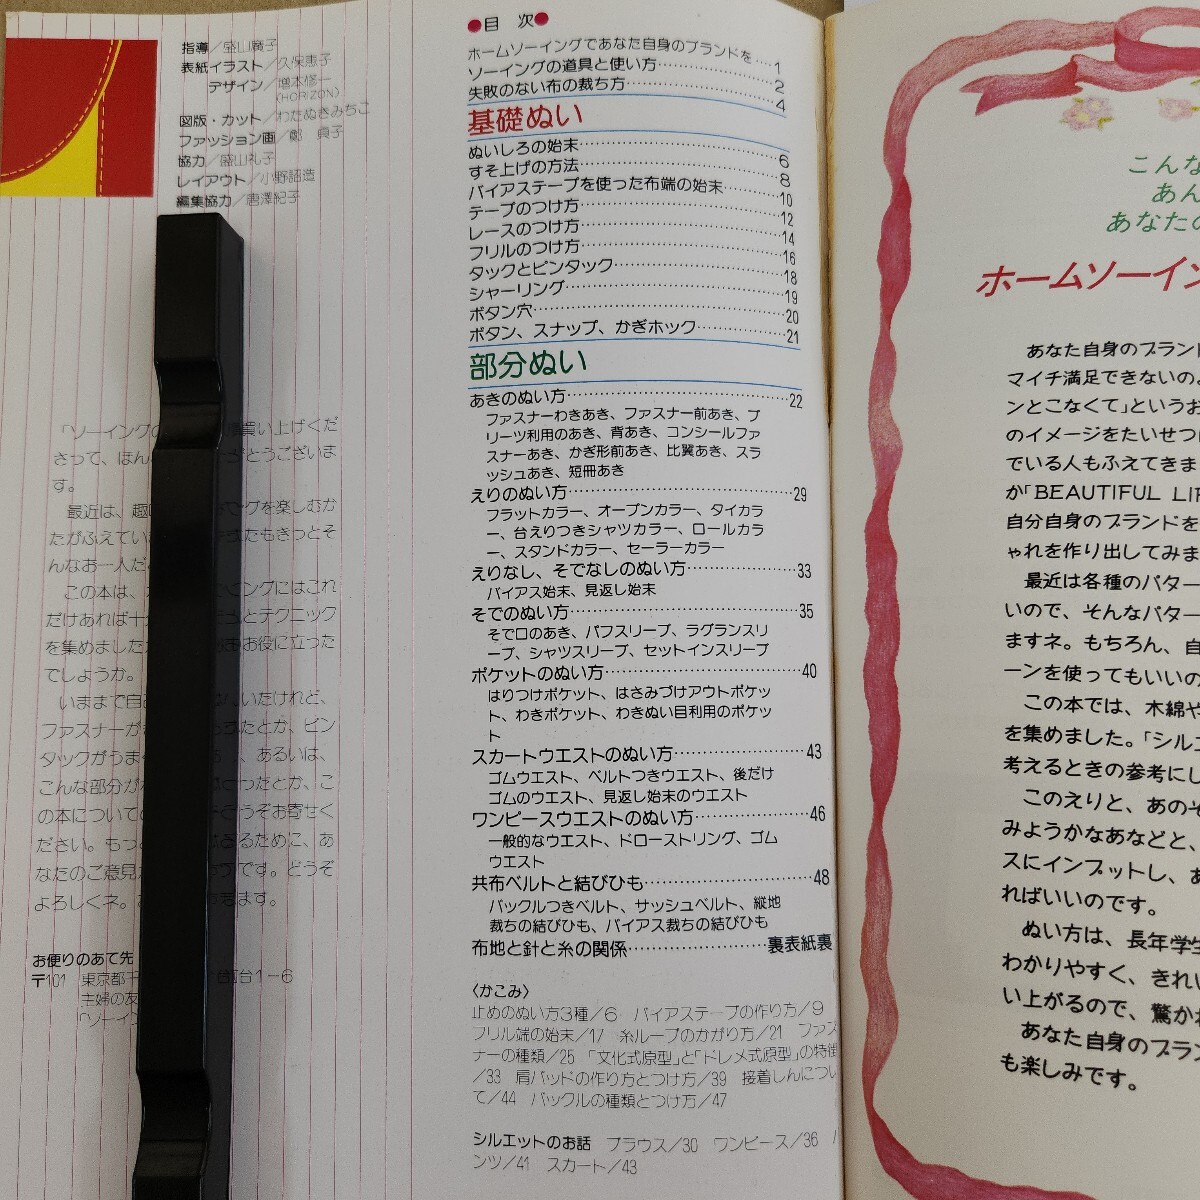 指導／盛山廣子
表紙イラスト／久保恵子
デザイン／増本修一
(HORIZON)
図版・カット／わたぬきみちこ
ファッション画／鄭 貞子
協力／盛山礼子
レイアウト／小野語造
編集協力／唐澤紀子
「ソーイングの
買い上げくだ
さって、ほん
とうございま
す。
最近は、趣
ングを楽しむか
たがふえてい
たもきっとそ
んなお一人だ
この本は、
ングにはこれ
だけあれば十
とテクニック
を集めました
お役に立った
でしょうか。
いままで自
いたけれど、
ファスナーが
たとか、ピン
タックがうま
、あるいは、
こんな部分が
ったとか、こ
の本について
うぞお寄せく
ださい。もっ
るために、あ
なたのご意見
です。どうぞ
よろしくネ。
ます。
お便りのあて先
〒101 東京都千
台1-6
主婦の友
「ソーイン
●目 次●
ホームソーイングであなた自身のブランドを……1
ソーイングの道具と使い方……2
失敗のない布の裁ち方……4
基礎ぬい
ぬいしろの始末……6
すそ上げの方法……8
バイアステープを使った布端の始末……10
テープのつけ方……12
レースのつけ方……14
フリルのつけ方……16
タックとピンタック……18
シャーリング……19
ボタン穴……20
ボタン、スナップ、かぎホック……21
部分ぬい
あきのぬい方……22
ファスナーわきあき、ファスナー前あき、プ
リーツ利用のあき、背あき、コンシールファ
スナーあき、かぎ形前あき、比翼あき、スラ
ッシュあき、短冊あき
えりのぬい方……29
フラットカラー、オープンカラー、タイカラ
ー、台えりつきシャツカラー、ロールカラ
ー、スタンドカラー、セーラーカラー
えりなし、そでなしのぬい方……33
バイアス始末、見返し始末
そでのぬい方……35
そで口のあき、パフスリーブ、ラグランスリ
ーブ、シャツスリーブ、セットインスリーブ
ポケットのぬい方……40
はりつけポケット、はさみづけアウトポケッ
ト、わきポケット、わきぬい目利用のポケッ
ト
スカートウエストのぬい方……43
ゴムウエスト、ベルトつきウエスト、後だけ
ゴムのウエスト、見返し始末のウエスト
ワンピースウエストのぬい方……46
一般的なウエスト、ドローストリング、ゴム
ウエスト
共布ベルトと結びひも……48
バックルつきベルト、サッシュベルト、縦地
裁ちの結びひも、バイアス裁ちの結びひも
布地と針と糸の関係……裏表紙裏
〈かこみ〉
止めのぬい方3種／6 バイアステープの作り方／9
フリル端の始末／17 糸ループのかがり方／21 ファス
ナーの種類／25 「文化式原型」と「ドレメ式原型」の特徴
／33 肩パッドの作り方とつけ方／39 接着しんについ
て／44 バックルの種類とつけ方／47
シルエットのお話 ブラウス／30 ワンピース／36 パ
ンツ／41 スカート／43
こんな
あん
あなたの
ホームソーイン
あなた自身のブラン
マイチ満足できないの
ンとこなくて」というお
のイメージをたいせつ
でいる人もふえてきま
か「BEAUTIFUL LI
自分自身のブランドを
ゃれを作り出してみま
最近は各種のパター
いので、そんなパター
ますネ。もちろん、自
ーンを使ってもいいの
この本では、木綿や
を集めました。「シル
考えるときの参考にし
このえりと、あのそ
みようかなあなどと、
スにインプットし、あ
ればいいのです。
ぬい方は、長年学生
わかりやすく、きれい
い上がるので、驚か
あなた自身のブラン
も楽しみです。